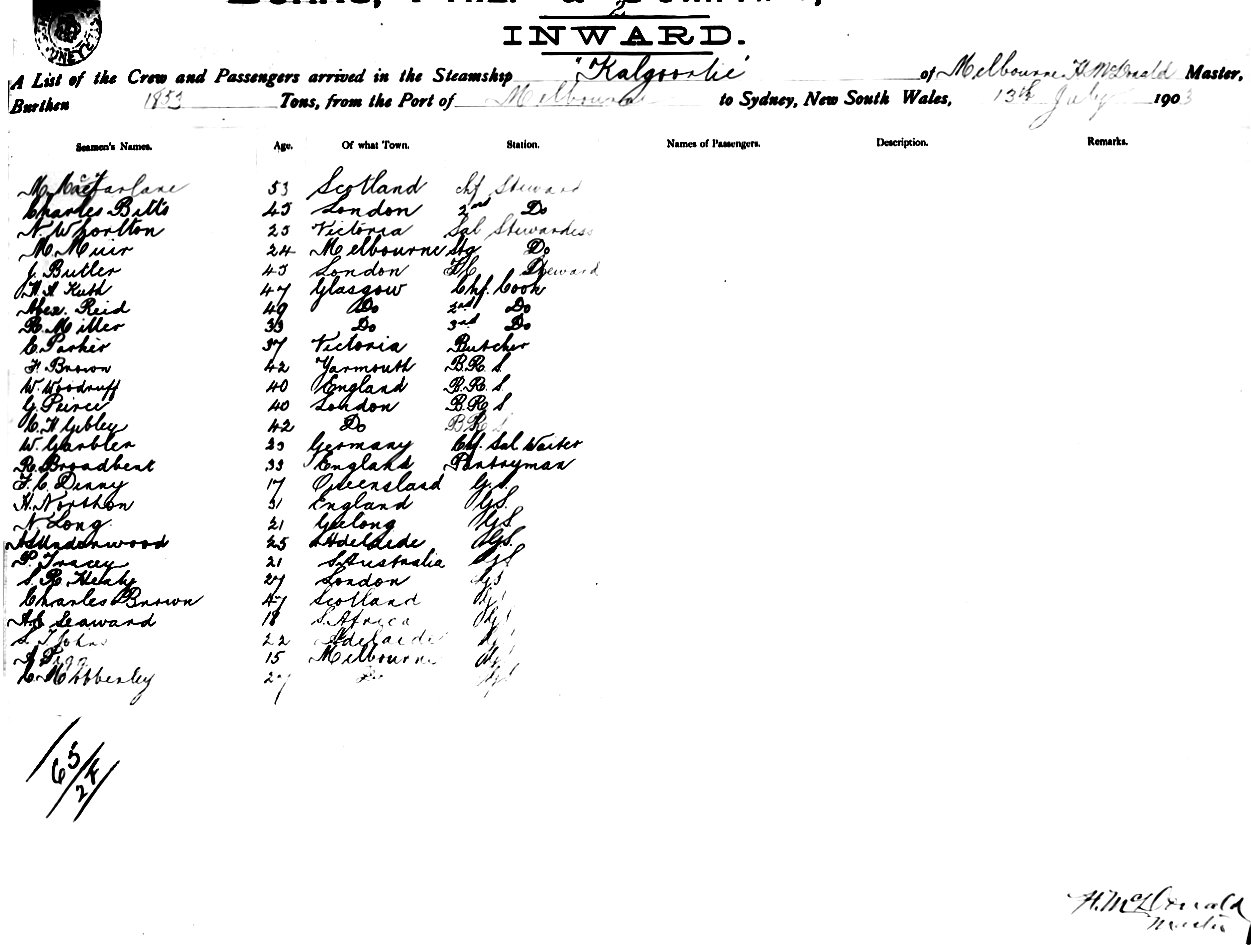 2
INWARD.
A List of the Crew and Passengers arrived in the Steamship "Kalgoorlie" of Melbourne H McDonald Master,
Burthen 1853 Tons, from the Port of Melbourne to Sydney, New South Wales, 13th July 1903
Seamen's Names. Age. Of what Town. Station. Names of Passengers. Description. Remarks.
M. MacFarlane 53 Scotland Chf Steward
Charles Bitts 45 London 2nd Do
N. Whorlton 25 Victoria Sal Stewardess
M. Muir 24 Melbourne Stg Do
J. Butler 43 London Steward
47 Glasgow Chf. Cook
Alex. Reid 49 Do 2nd Do
R. Miller 33 Do 3rd Do
C. Parker 37 Victoria Butcher
F. Brown 42 Yarmouth B.R. S
W. Woodruff 40 England B.R. S
G. Peirce 40 London B.R. S
C. H Gibley 42 Do B.R. S
W. Garbler 23 Germany Chf. Sal Waiter
R. Broadbent 33 England Pantryman
F. C. Denny 17 Queensland G.S.
H. Northon 31 England G.S.
N Long 21 Geelong G.S.
Underwood 25 Adelaide G.S.
P. Tracey 21 S. Australia G.S
S. R. Healy 27 London G.S
Charles Brown 47 Scotland G.S
Seaward 18 S. Africa G.S
S. T Johns 22 Adelaide G.S
15 Melbourne G.S
C. Mobberley 27 Do G.S
63/24
H. McDonald
Master